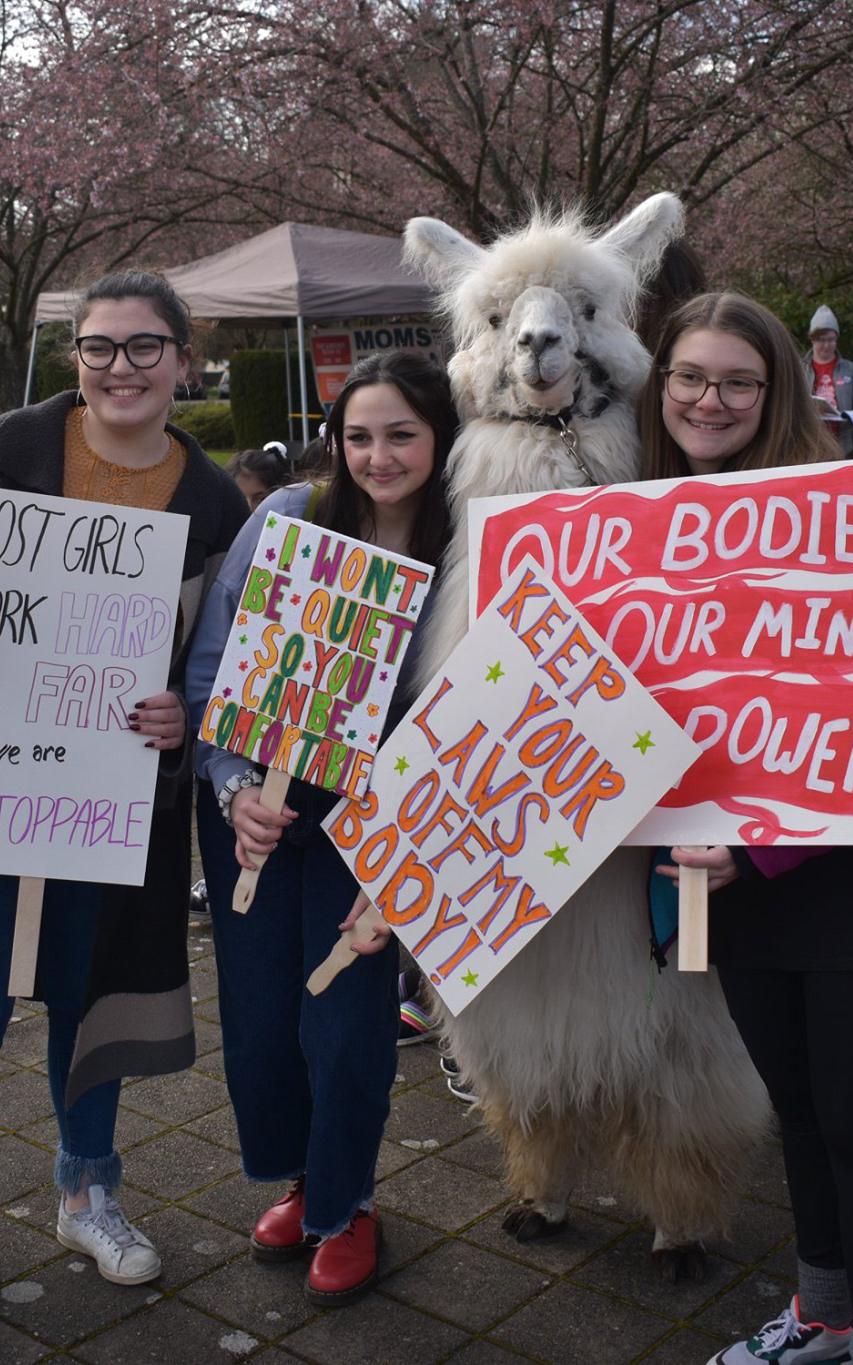 OST GIRLS
RK HARD
FAR
we are
TOPPABLE
I WONT
BE QUIET
SO YOU
CAN BE
COMFORTABLE
KEEP
YOUR
LAWS
OFF MY
BODY!
OUR BODIE
OUR MIN
POWE
MOMS